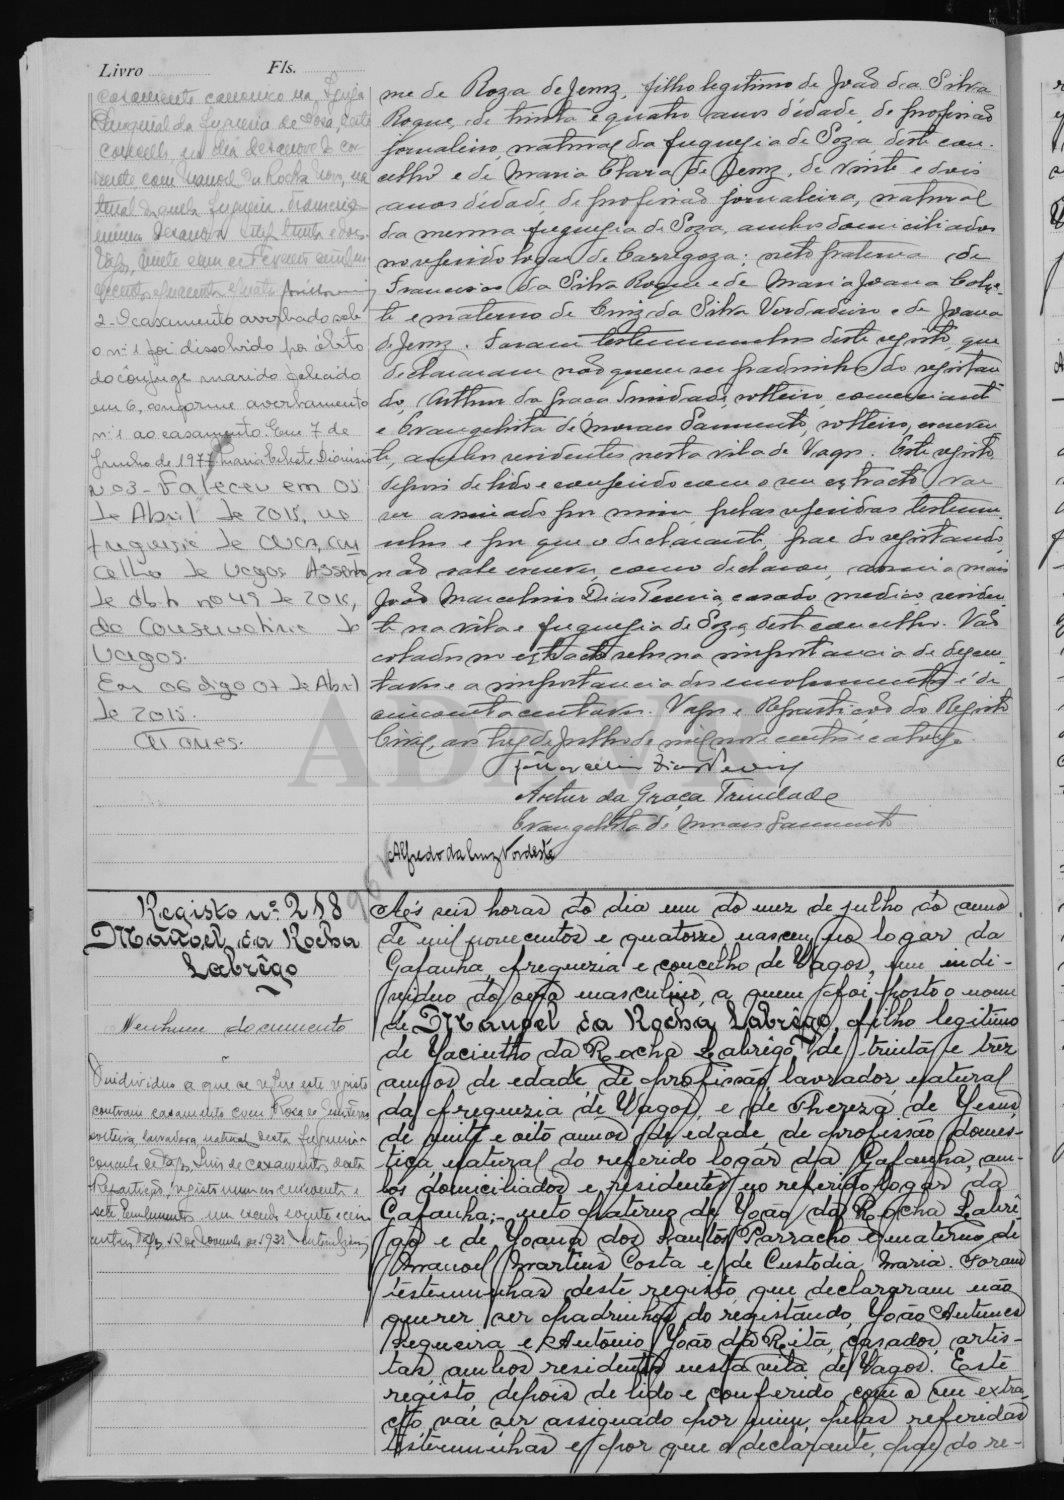 Livro Fls.
casamento canonico na Igreja
Paroquial da freguesia de Soza, deste
concelho, no dia dezanove do cor-
rente com Manoel da Rocha Novo, na
tural daquela freguesia.
2- O casamento averbado sob
o nº 1 foi dissolvido por óbito
do cônjuge marido falecido
em 6, conforme averbamento
nº 1 ao casamento. Em 7 de
Junho de 1977 Maria Celeste Dionisio
Nº 3 - Faleceu em 05
de Abril de 2015, na
freguesia de con
celho de Vagos Assento
de óbito nº 49 de 2015,
da Conservatória de
Vagos.
Em 06 digo 07 de Abril
de 2015.
me de Roza de Jesuz, filho legitimo de João da Silva
Roque, de trinta e quatro anos d'idade, de profissão
jornaleiro, natural da freguesia de Soza, deste con-
celho e de Maria Clara de Jesuz, de vinte e dois
anos d'idade, de profissão jornaleira, natural
da mesma freguesia de Soza, ambos domiciliados
no referido logar de Carregoza; neto paterno de
Francisco da Silva Roque e de Maria Joana
e materno de Luiz da Silva Verdadeiro e de Joana
de Jesuz. Foram testemunhas deste registo, que
declararam não querem ser padrinhos do registan
do, Arthur da Graça Trindade, solteiro, comerciante
e Evangelista de Moraes Sarmento, solteiro, escreven
te, ambos residentes nesta vila de Vagos. Este registo
depois de lido e conferido com o seu extracto, vae
ser assinado por mim, pelas referidas testemu-
nhas e por que o declarante, pae do registando,
não sabe escrever, como declarou, assina mais
João Marcelino Dias Pereira, casado, medico, residen-
te na vila e freguesia de Soza, deste concelho. Vão
colados no extracto selos na importancia de
tavos e a importancia dos emolumentos é de
cincoenta centavos. Vagos e Repartição do Registo
Civil, aos de Julho de mil novecentos e catorze.
João Marcelino Dias Pereira
Artur da Graça Trindade
Evangelista de Moraes Sarmento
Alfredo da Cruz Nordeste
Registo nº 218
Manoel da Rocha
Labrêgo
Nenhum documento
O individuo a que se refere este registo
contraiu casamento com Rosa de
solteira, lavradora, natural desta freguesia e
concelho de Vagos, Livro de casamentos desta
Repartição, registo numero cincoenta e
sete
Ás seis horas do dia um do mez de julho do anno
de mil novecentos e quatorze nasceu no logar da
Gafanha, freguezia e concelho de Vagos, um indi-
viduo do sexo masculino, a quem foi posto o nome
de Manoel da Rocha Labrêgo, filho legitimo
de Jacintho da Rocha Labrêgo, de trinta e trez
annos de edade, de profissão lavrador, natural
da freguezia de Vagos, e de Thereza de Jesus,
de vinte e oito annos de edade, de profissão domes-
tica, natural do referido logar da Gafanha, am-
bos domiciliados e residentes no referido logar da
Gafanha; - neto paterno de João da Rocha Labrê
go e de Joana dos Santos Parracho e materno de
Manoel Martins Costa e de Custodia Maria. Foram
testemunhas deste registo, que declararam não
querer ser padrinhos do registando, João Antunes
Sequeira e António João da Reita, casados, artis-
tas, ambos residentes nesta vila de Vagos. Este
registo, depois de lido e conferido com o seu extra-
cto, vai ser assignado por mim, pelas referidas
testemunhas e por que o declarante, pae do re-